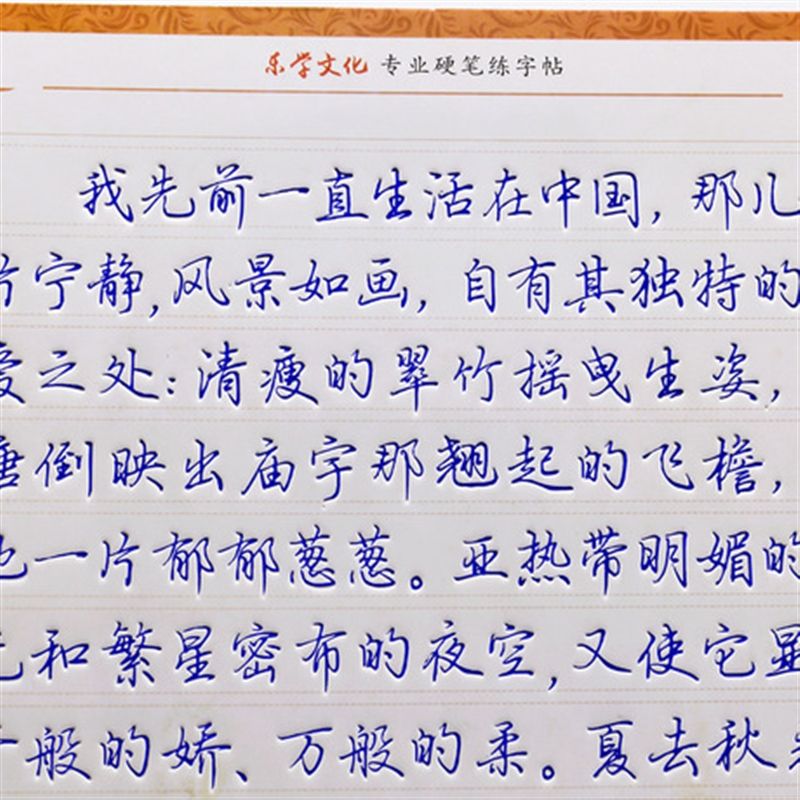 乐学文化 专业硬笔练字帖
我先前一直生活在中国，那儿
宁静，风景如画，自有其独特的
之处：清瘦的翠竹摇曳生姿，
倒映出庙宇那翘起的飞檐，
一片郁郁葱葱。亚热带明媚的
和繁星密布的夜空，又使它虽
般的娇、万般的柔。夏去秋